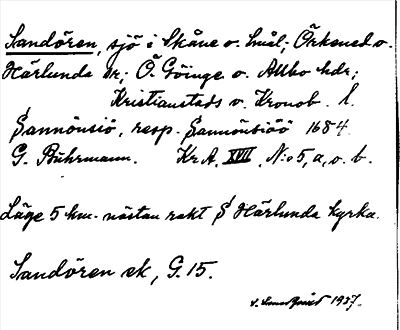 Sandören, sjö i Skåne o. Smål; Örkened o.
Härlunda sr; Ö. Göinge o. Allbo hdr;
Kristianstads o. Kronob. l.
Sannönsiö, resp. Sannönsiöö 1684
G. Buhrmann. Kr.A. XVII, N:o 5, a, o. b.
Läge 5 km. nästan rakt S Härlunda kyrka.
Sandören ek, G. 15.
1927.